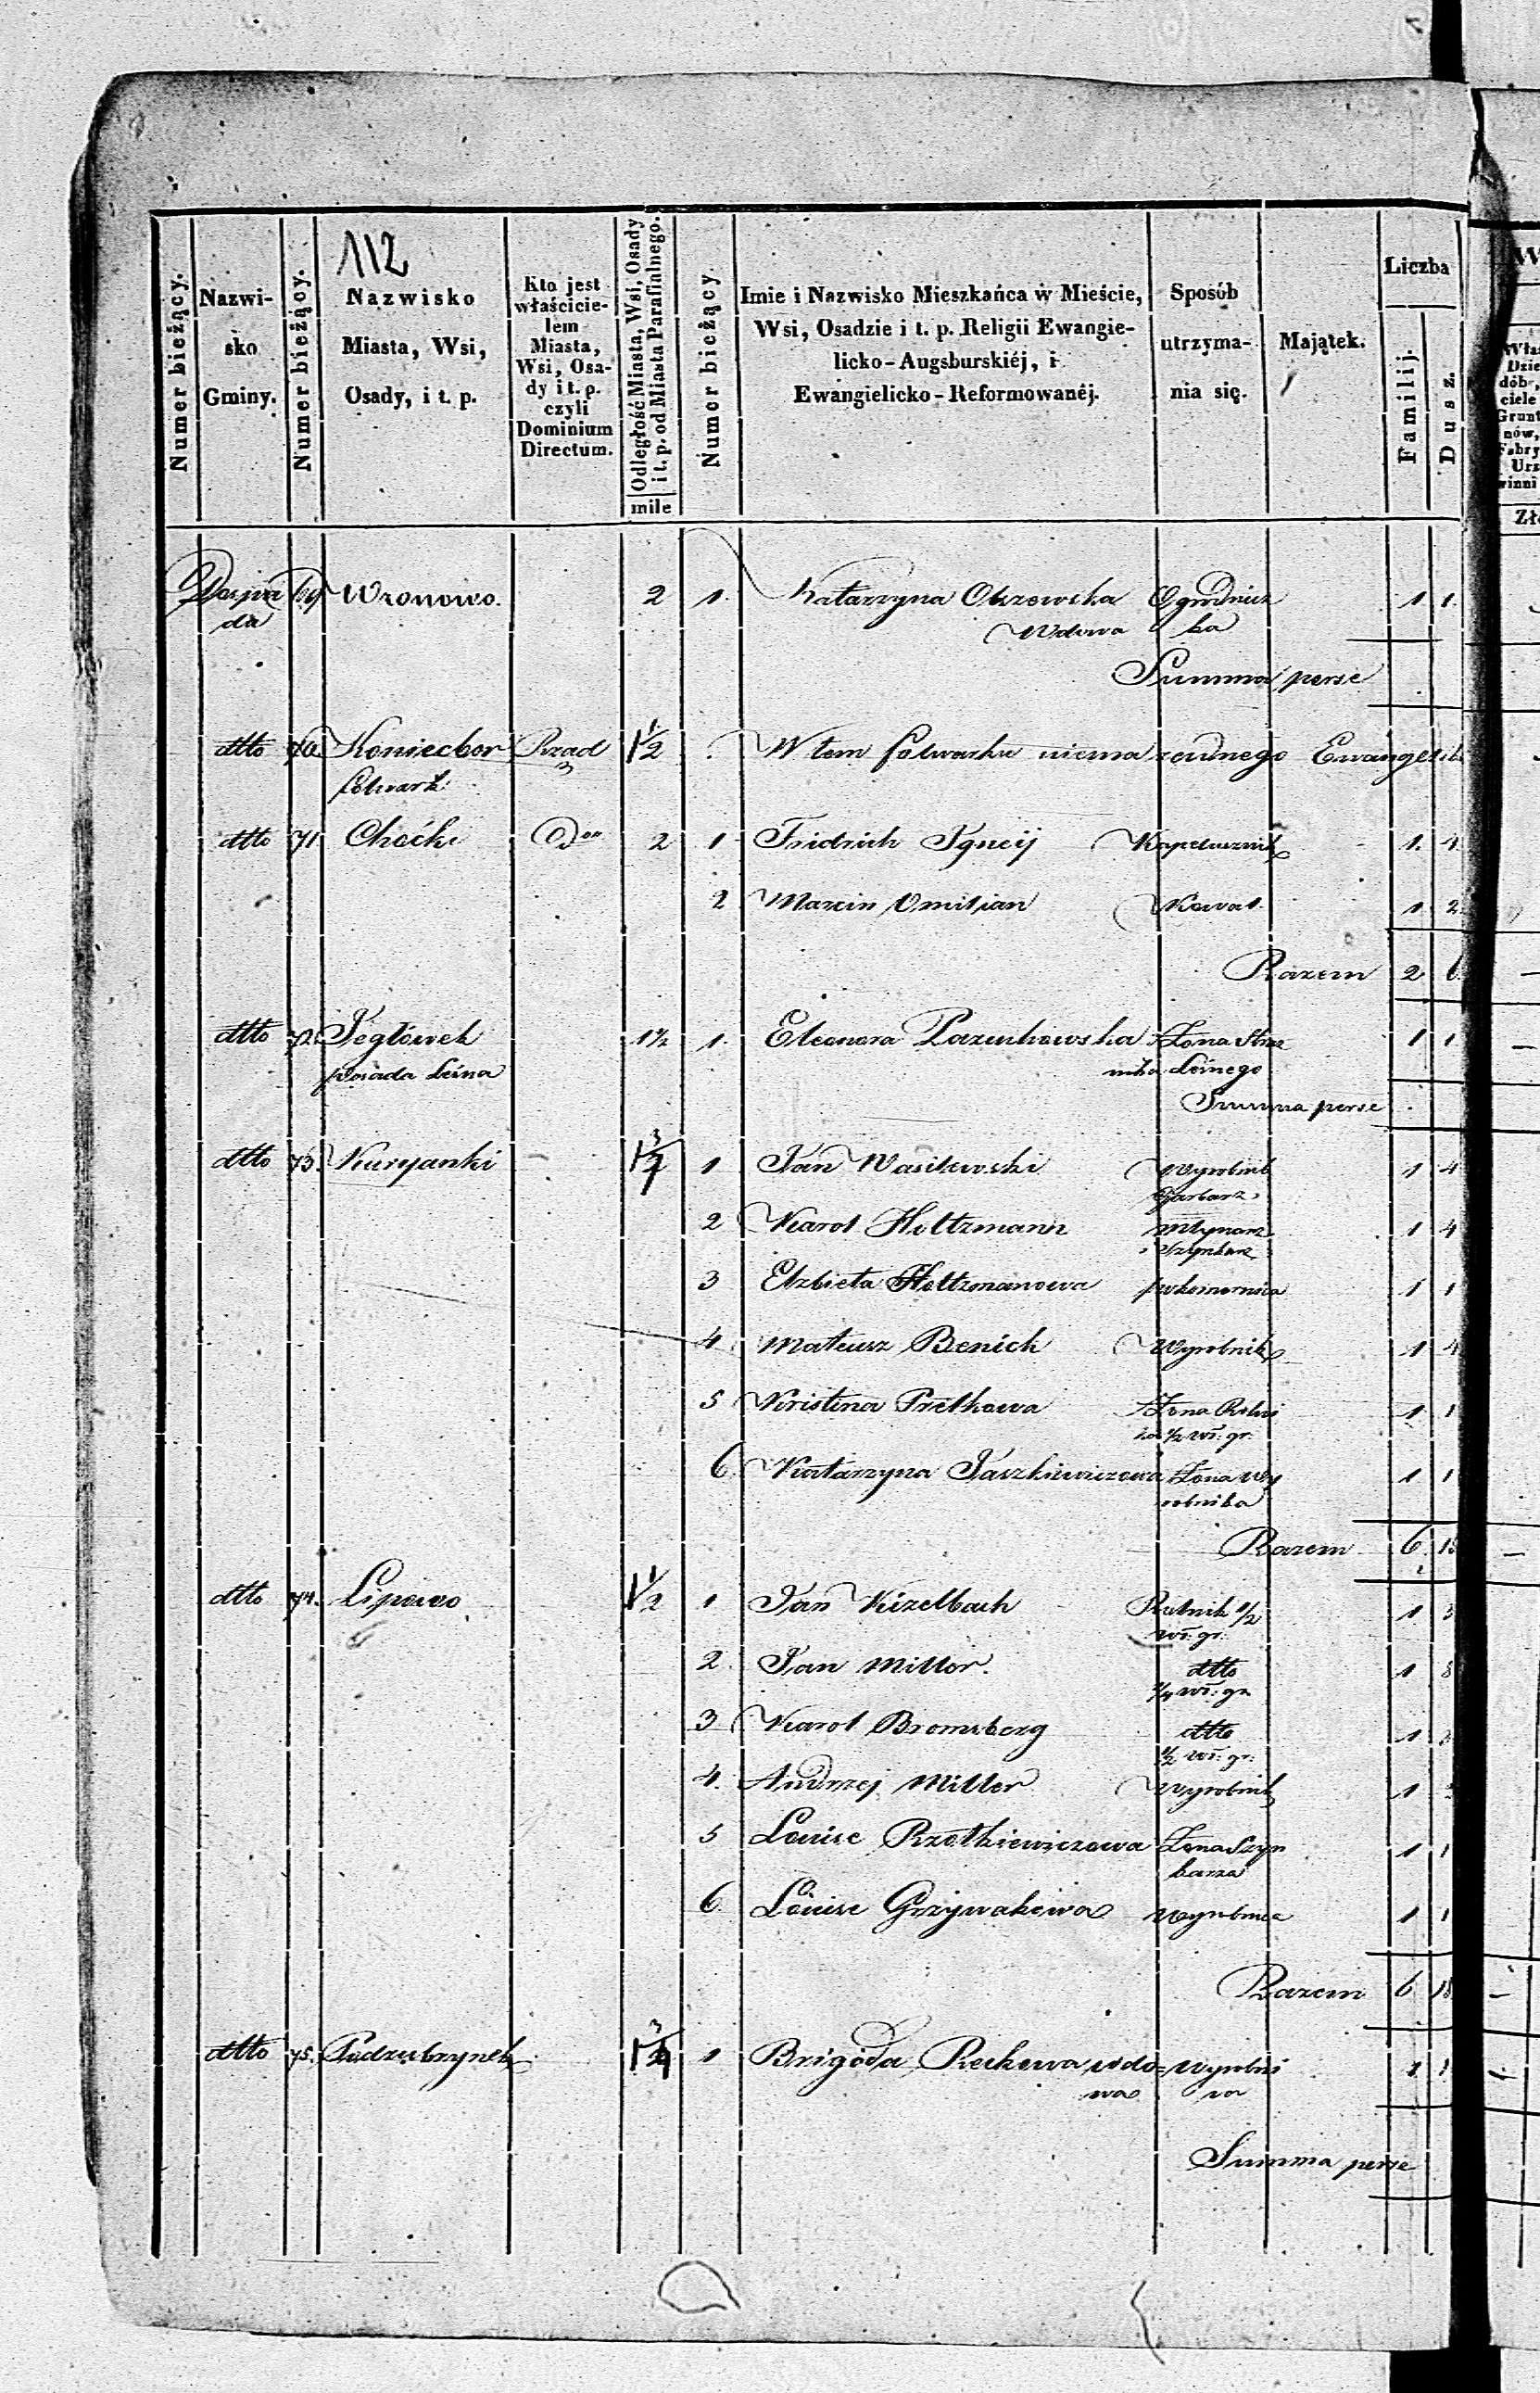 112
Numer bieżący.
Nazwi-
sko
Gminy.
Numer bieżący.
Nazwisko
Miasta, Wsi,
Osady, i t. p.
Kto jest
właścicie-
lem
Miasta,
Wsi, Osa-
dy i t. p.
czyli
Dominium
Directum.
Odległość Miasta, Wsi, Osady
i t. p. od Miasta Parafialnego.
mile
Numer bieżący
Imie i Nazwisko Mieszkańca w Mieście,
Wsi, Osadzie i t. p. Religii Ewangie-
licko-Augsburskiéj, i
Ewangielicko-Reformowanéj.
Sposób
utrzyma-
nia się.
Majątek.
Liczba
Familij.
Dusz.
69 Wronowo. 2 1. Katarzyna Olszewska Ogrodnicz 1 1.
da Wdowa ka
Summa perse
dtto 70 Koniecbor Rząd 1 1/2 W tem folwarku niema żednego Ewangelik
folwark
dtto 71 Choćki Do 2 1 Fridrich Kapelusznik 1. 4.
2 Marcin Omilian Kowal. 1 2.
Razem 2 6
dtto 72. Jegłówek 1 1/2 1. Eleonora Pazuchowska Żona Straż
posada Leśna nika Leśnego 1 1
Summa perse
dtto 73. Kuryanki 1 3/4 1 Jan Wasilewski Wyrobnik 1 4
Garbarz
2 Karol Holtzmann Młynarz 1 4
i Szynkarz
3 Elzbieta Holtzmanowa pokomornica 1 1
4 Mateusz Benich Wyrobnik 1 4
5 Kristina Pretkowa Żona Rolni 1 1
ka 1/2 wł: gr:
6. Katarzyna Jaszkiewiczowa Żona wy 1 1
robnika
Razem 6 15
dtto 74. Lipowo 1 1/2 1 Jan Kizelbach Rolnik 1/2 1 3
wł: gr:
2. Jan Miller. dtto 1 8
1/4 wł: gr
3 Karol Bromberg dtto 1
1/2 wł: gr:
4. Andrzej Miller Wyrobnik 1
5 Louise Rzotkiewiczowa Żona Szyn 1 1
karza
6. Louise Grzywakowa wyrobnica 1 1
Razem 6 18
dtto 75. Podzubrynek 1 3/4 1 Brigida Reckowa wdo= wyrobni 1 1
wa ca
Summa perse